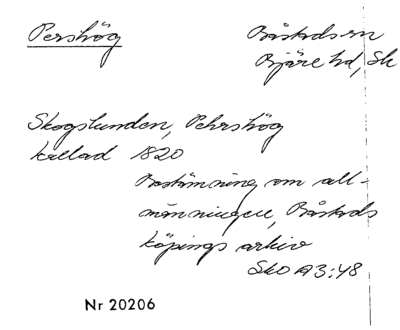 Pershög
Båstads sn
Bjäre hd, Sk
Skogslunden, Pehrshög
kallad 1820
Bestämning om all-
männingen, Båstads
köpings arkiv
SkO A3:48
Nr 20206